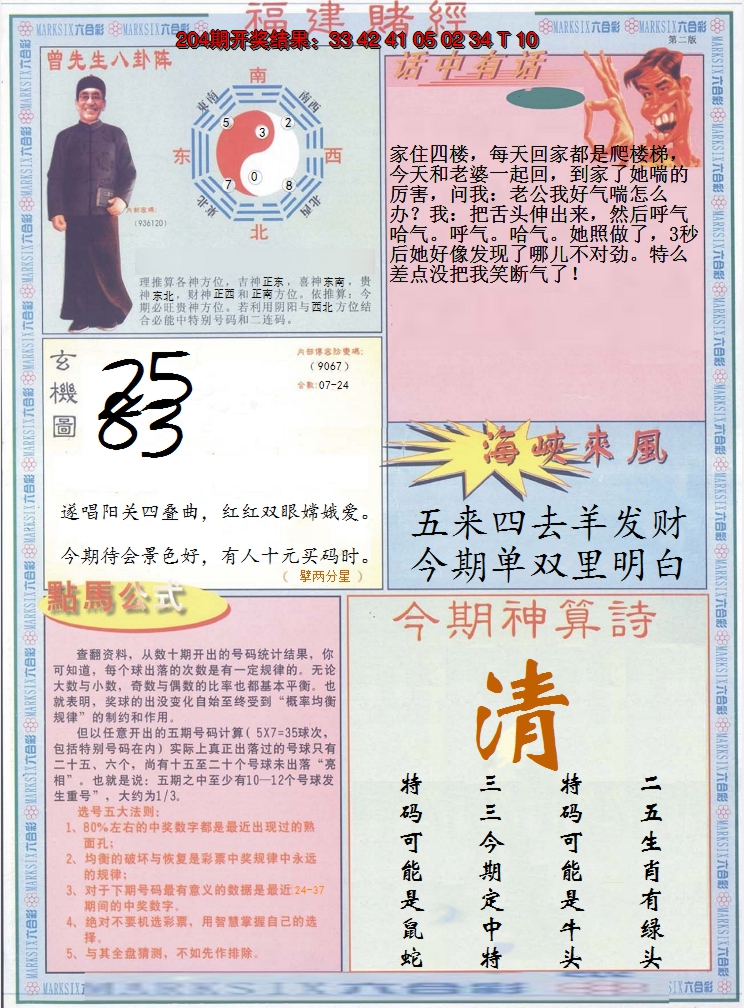 福建賭經
204期开奖结果：33 42 41 05 02 34 T 10
MARKSIX六合彩
第二版
曾先生八卦阵
南
東南
南西
5
3
2
东
西
7
0
8
東北
北西
北
内部密碼：
（936120）
理推算各神方位，吉神正东，喜神东南，贵
神东北，财神正西和正南方位。依推算：今
期必旺贵神方位。若利用阴阳与西北方位结
合必能中特别号码和二连码。
话中有话
家住四楼，每天回家都是爬楼梯，
今天和老婆一起回，到家了她喘的
厉害，问我：老公我好气喘怎么
办？我：把舌头伸出来，然后呼气
哈气。呼气。哈气。她照做了，3秒
后她好像发现了哪儿不对劲。特么
差点没把我笑断气了！
玄機圖
25
83
（9067）
合数：07-24
遂唱阳关四叠曲，红红双眼嫦娥爱。
今期待会景色好，有人十元买码时。
（ 劈两分星 ）
海峽來風
五来四去羊发财
今期单双里明白
點馬公式
查翻资料，从数十期开出的号码统计结果，你
可知道，每个球出落的次数是有一定规律的。无论
大数与小数，奇数与偶数的比率也都基本平衡。也
就表明，奖球的出没变化自始至终受到“概率均衡
规律”的制约和作用。
但以任意开出的五期号码计算（5X7=35球次，
包括特别号码在内）实际上真正出落过的号球只有
二十五、六个，尚有十五至二十个号球未出落“亮
相”。也就是说：五期之中至少有10—12个号球发
生重号”，大约为1/3。
选号五大法则：
1、80%左右的中奖数字都是最近出现过的熟
面孔；
2、均衡的破坏与恢复是彩票中奖规律中永远
的规律；
3、对于下期号码最有意义的数据是最近24-37
期间的中奖数字。
4、绝对不要机选彩票，用智慧掌握自己的选
择。
5、与其全盘猜测，不如先作排除。
今期神算詩
清
二五生肖有绿头
特码可能是牛头
三三今期定中特
特码可能是鼠蛇